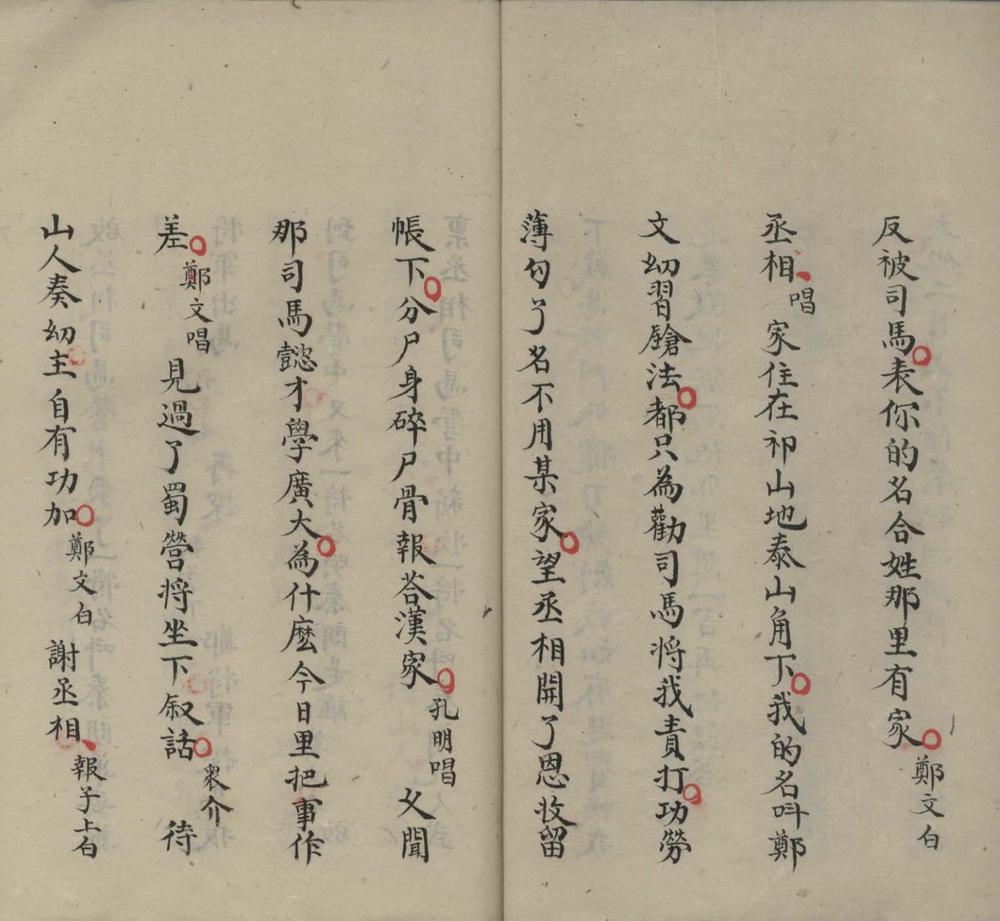 反被司馬。表你的名合姓那里有家。鄭文白
丞相、唱家住在祁山地泰山角下。我的名叫鄭
文幼習鎗法。都只為勸司馬將我責打。功勞
薄勾了名不用某家。望丞相開了恩收留
帳下。分尸身碎尸骨報荅漢家。孔明唱 久聞
那司馬懿才學廣大。為什麽今日里把事作
差。鄭文唱見過了蜀營将坐下叙話。衆介 待
山人奏幼主自有功加。鄭文白 謝丞相、報子上白